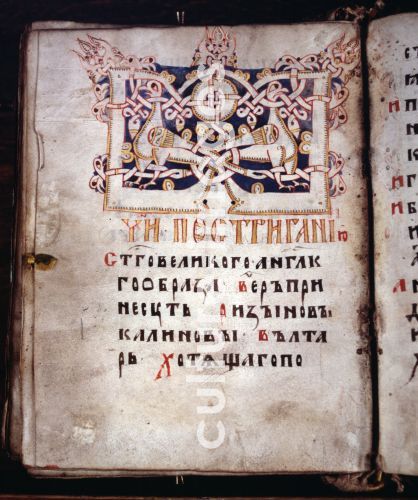 ЧИ ПОСТРИГАНІЮ
СТГОВЕЛИКОГО АНГЛК
ГООБРАЗА ВЕРЪ ПРИ
НЕСУТЬ РИЗЫ НОВЪ
КАЛИНОВЫ ВЪЛТА
РЬ ХОТѦЩАГОПО